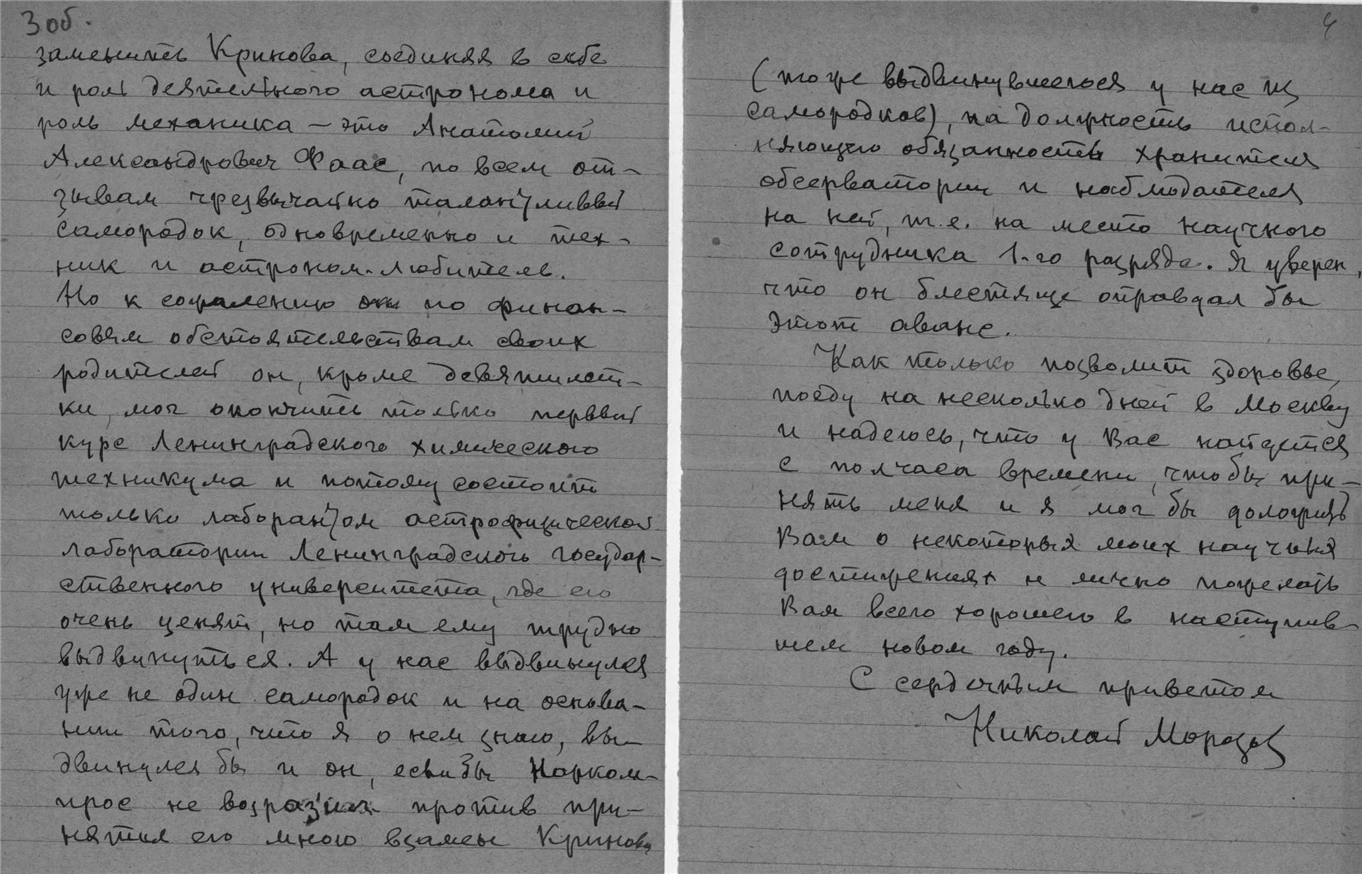 3 об.
заменить Кринова, соединяя в себе
и роль деятельного астронома и
роль механика – это Анатолий
Александрович Фаас, по всем от-
зывам чрезвычайно талантливый
самородок, одновременно и тех-
ник и астроном-любитель.
Но к сожалению по финан-
совым обстоятельствам своих
родителей он, кроме девятилет-
ки, мог окончить только первый
курс Ленинградского химического
техникума и потому состоит
только лаборантом астрофизической
лаборатории Ленинградского государ-
ственного университета, где его
очень ценят, но там ему трудно
выдвинуться. А у нас выдвинулся
уже не один самородок и на основа-
нии того, что я о нем знаю, вы-
двинулся бы и он, если бы Нарком-
прос не возразил против при-
нятия его мною взамен Кринова
4
(тоже выдвинувшегося у нас из
самородков), на должность испол-
няющего обязанность хранителя
обсерватории и наблюдателя
на ней, т.е. на место научного
сотрудника 1-го разряда. Я уверен,
что он блестяще оправдал бы
этот аванс.
Как только позволит здоровье,
поеду на несколько дней в Москву
и надеюсь, что у Вас найдется
с полчаса времени, чтобы при-
нять меня и я мог бы доложить
Вам о некоторых моих научных
достижениях и лично пожелать
Вам всего хорошего в наступив-
шем новом году.
С сердечным приветом
Николай Морозов